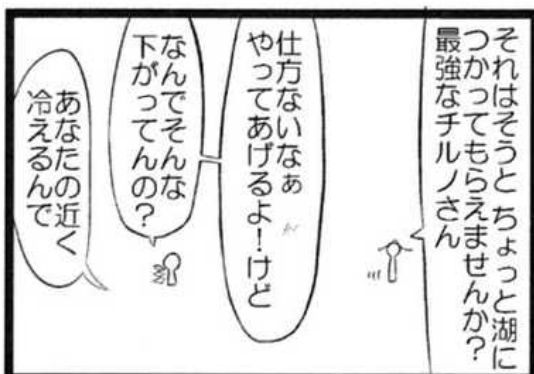 それはそうと ちょっと湖に
つかってもらえませんか?
最強なチルノさん
仕方ないなぁ
やってあげるよ!けど
なんでそんな
下がってんの?
あなたの近く
冷えるんで